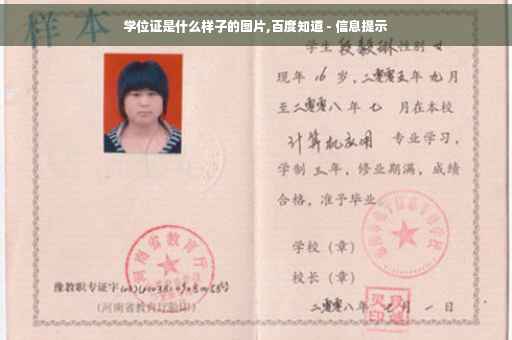 学位证是什么样子的图片,百度知道 - 信息提示
样本
学生 段毅琳 性别 女
现年 16 岁，二零零五年 九月
至二零零八年 七 月在本校
计算机应用 专业学习，
学制 三年，修业期满，成绩
合格，准予毕业。
学校（章）
校长（章）
二零零八年 七 月 一 日
河南省教育厅
豫教职专证字
（河南省教育厅验印）